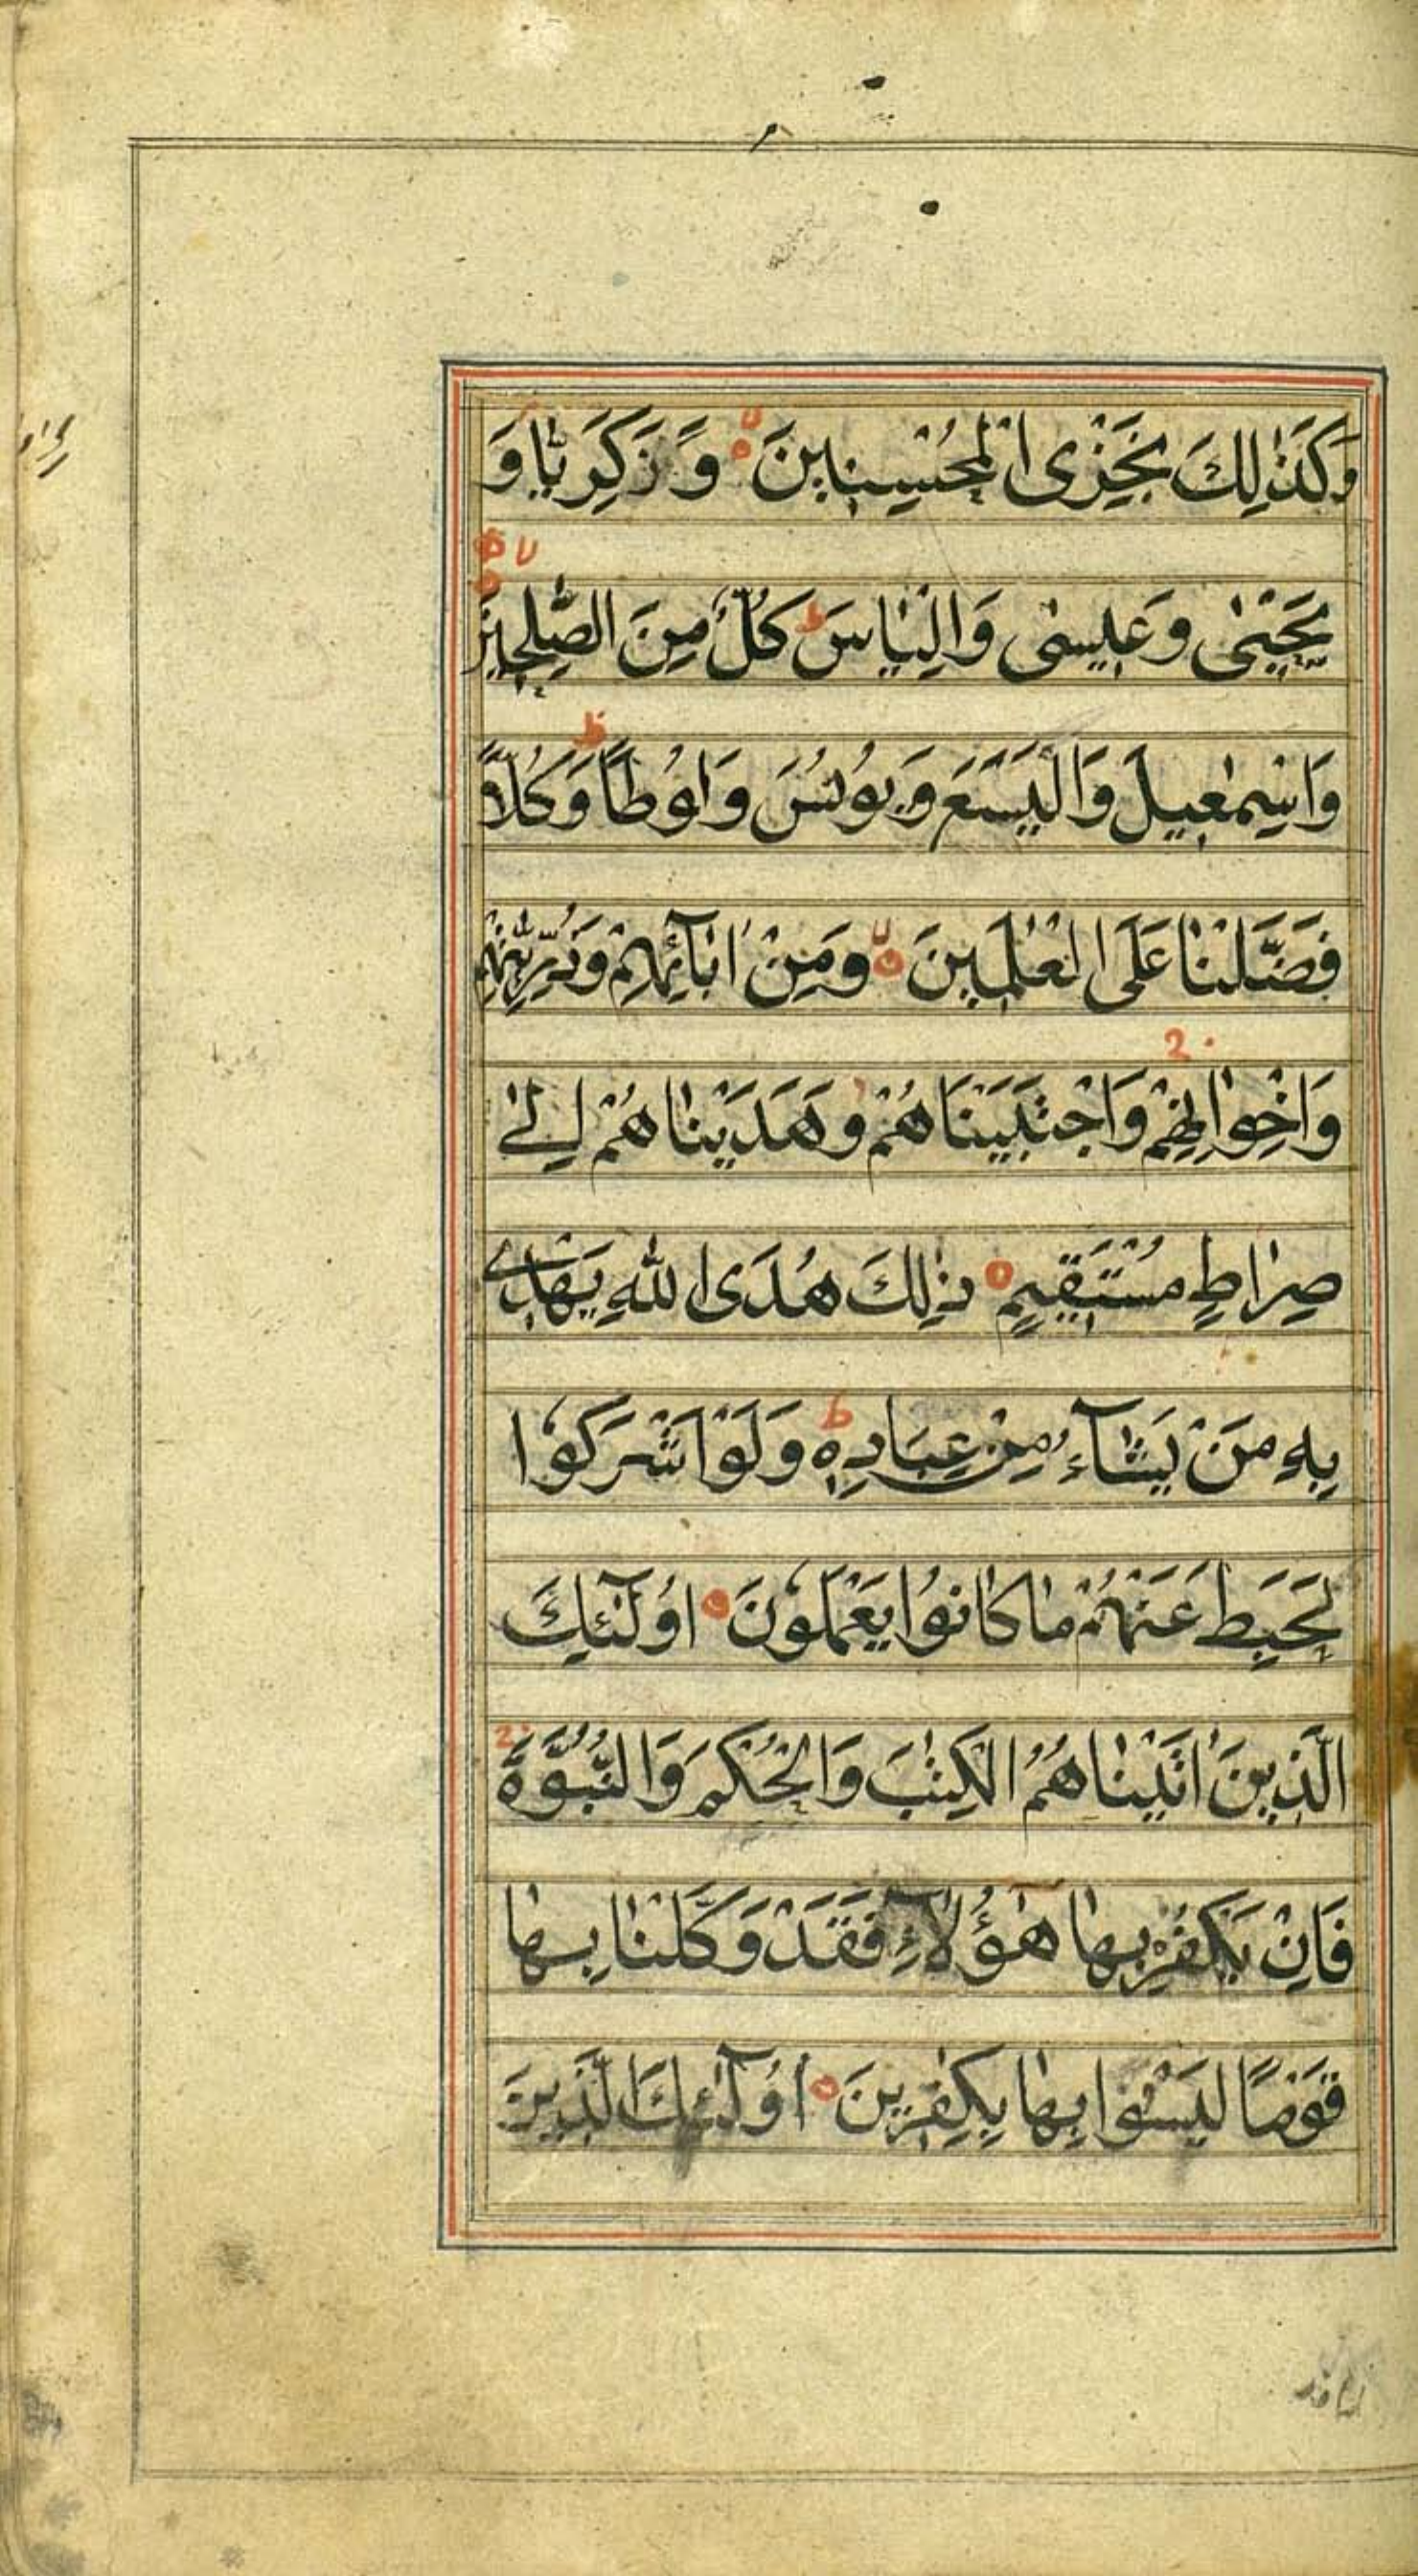 وَكَذٰلِكَ نَجْزِى الْمُحْسِنِينَ ۙ وَزَكَرِيَّا وَ
يَحْيٰى وَعِيسٰى وَاِلْيَاسَ ط كُلٌّ مِنَ الصّٰلِحِينَ ۙ
وَاِسْمٰعِيلَ وَالْيَسَعَ وَيُونُسَ وَلُوطًا ط وَكُلًّا
فَضَّلْنَا عَلَى الْعٰلَمِينَ ۙ وَمِنْ اٰبَآئِهِمْ وَذُرِّيّٰتِهِمْ
وَاِخْوَانِهِمْ ج وَاجْتَبَيْنَاهُمْ وَهَدَيْنَاهُمْ اِلٰى
صِرَاطٍ مُسْتَقِيمٍ ٥ ذٰلِكَ هُدَى اللّٰهِ يَهْدِى
بِهِ مَنْ يَشَآءُ مِنْ عِبَادِهِ ط وَلَوْ اَشْرَكُوا
لَحَبِطَ عَنْهُمْ مَا كَانُوا يَعْمَلُونَ ٥ اُولٰٓئِكَ
الَّذِينَ اٰتَيْنَاهُمُ الْكِتٰبَ وَالْحُكْمَ وَالنُّبُوَّةَ ج
فَاِنْ يَكْفُرْ بِهَا هٰٓؤُلَآءِ فَقَدْ وَكَّلْنَا بِهَا
قَوْمًا لَيْسُوا بِهَا بِكٰفِرِينَ ٥ اُولٰٓئِكَ الَّذِينَ